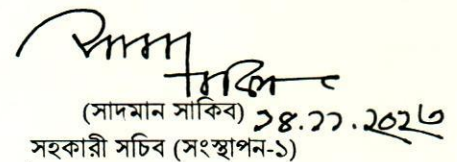 সাদমান
সাকিব
(সাদমান সাকিব) ১৪.১১.২০২৩
সহকারী সচিব (সংস্থাপন-১)